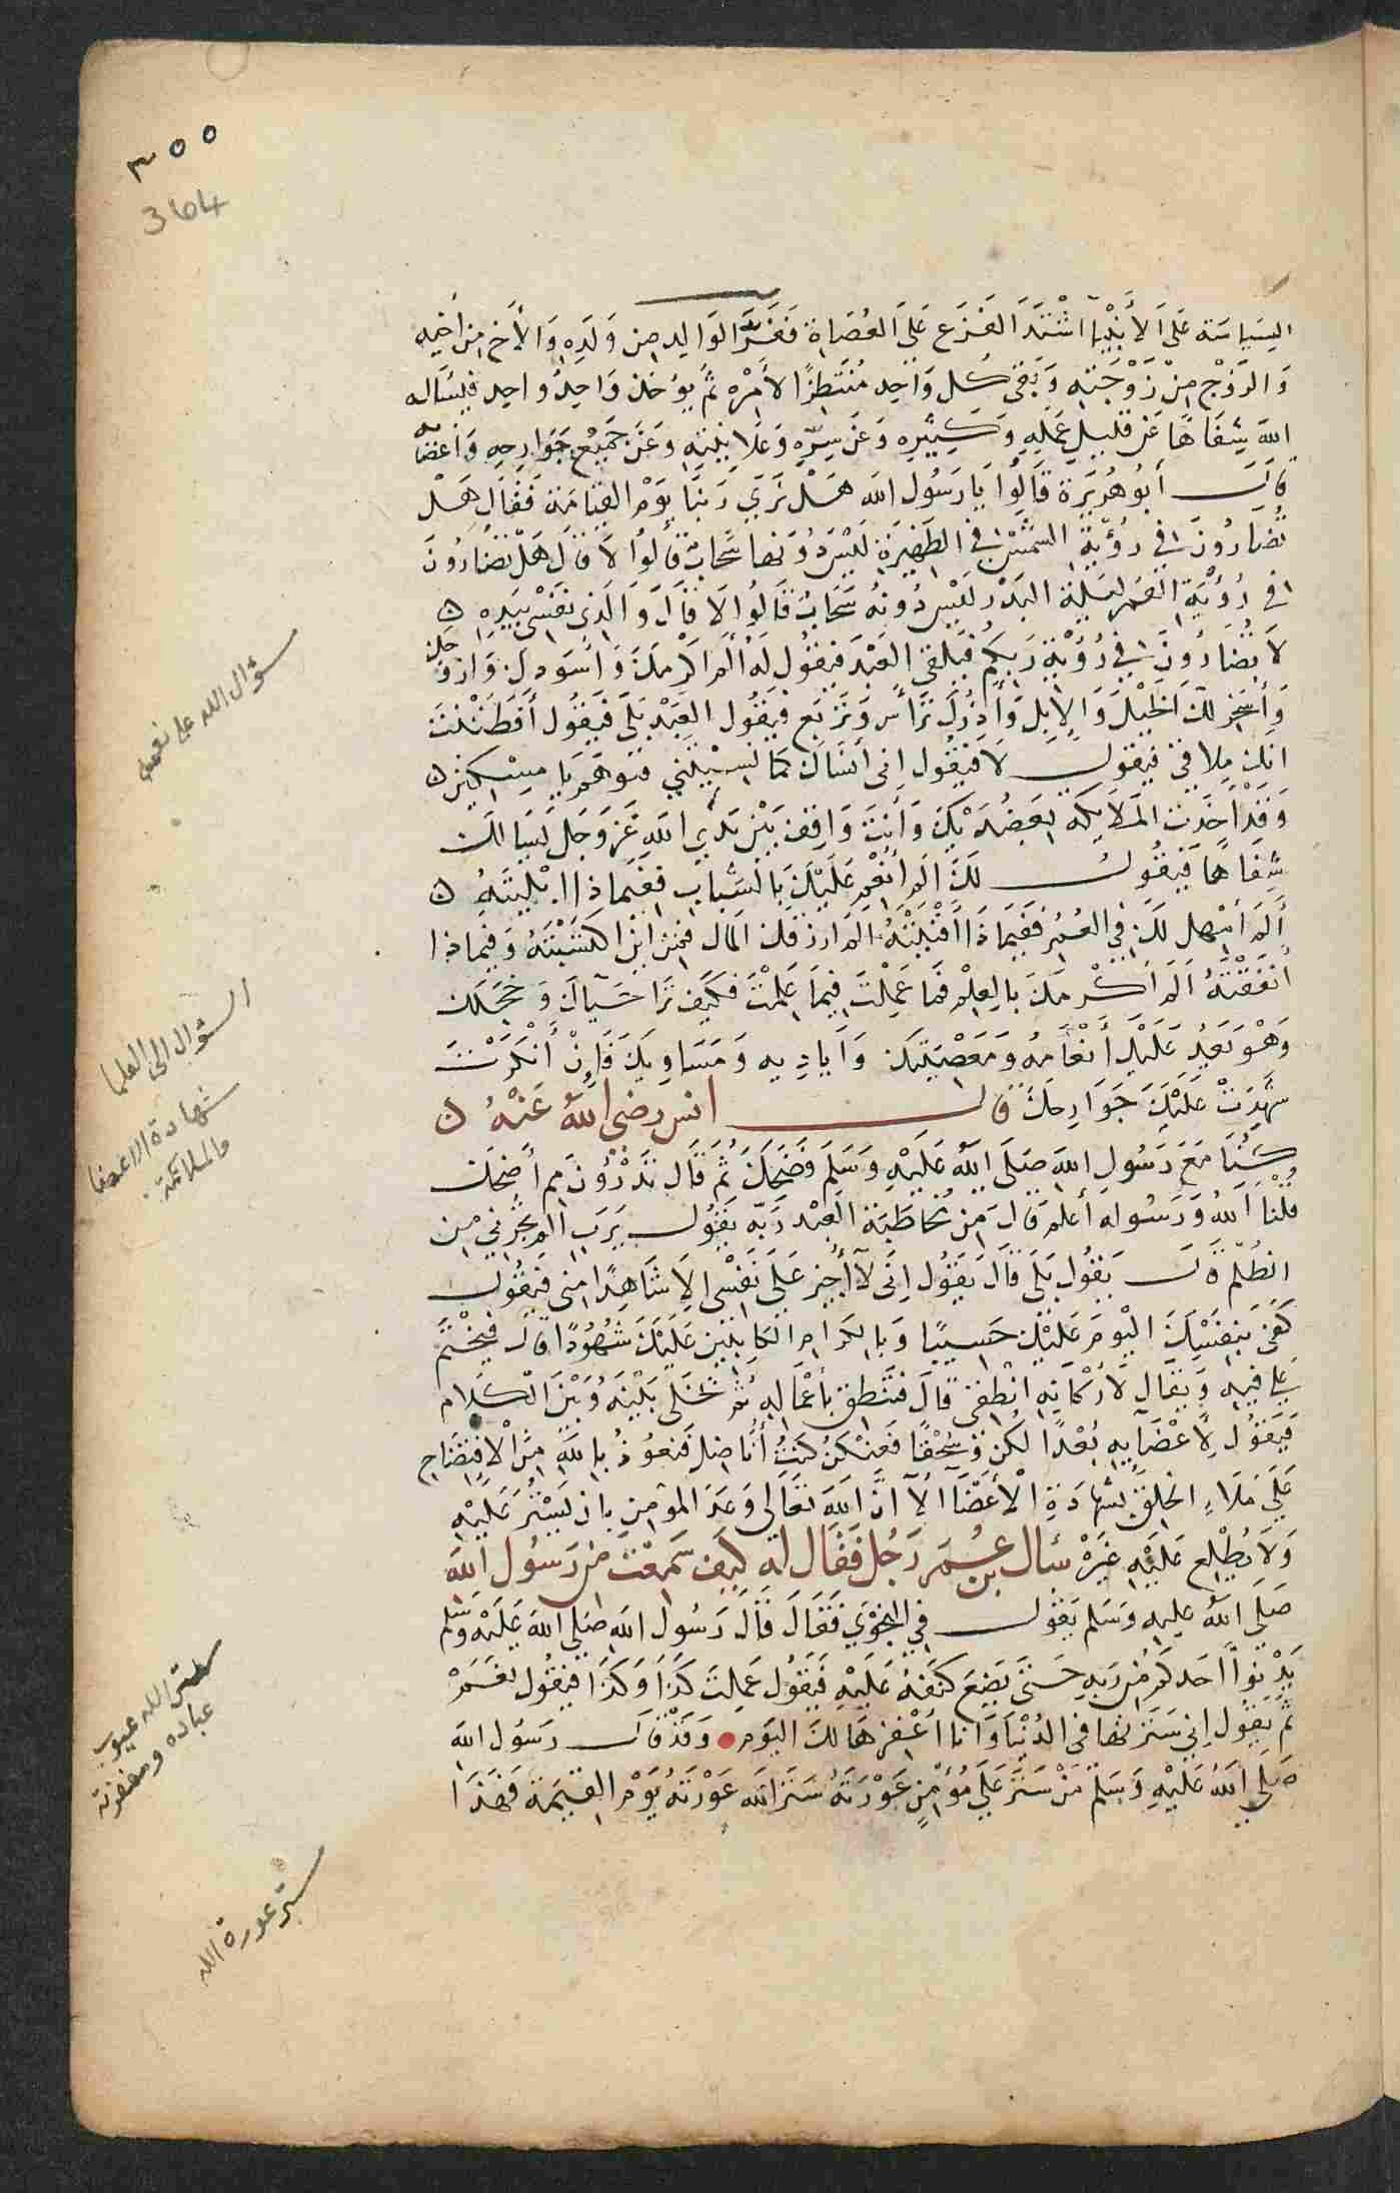 ٣٥٥
364
السياسة على الأنبيا اشتد الفزع على العصاة ففر الوالد من ولده والأخ من أخيه
والزوج من زوجته وبقى كل واحد منتظرًا لأمره ثم يؤخذ واحد واحد فيسأله
الله شفاهًا عن قليل عمله وكثيره وعن سره وعلانيته وعن جميع جوارحه وأعضائه
قال أبو هريرة قالوا يا رسول الله هل نرى ربنا يوم القيامة فقال هل
تضارون في رؤية الشمس في الظهيرة ليس دونها سحاب قالوا لا قال هل تضارون
في رؤية القمر ليلة البدر ليس دونه سحاب قالوا لا قال والذي نفسي بيده ن
لا تضارون في رؤية ربكم فيلقى العبد فيقول له ألم أكرمك وأسودك وأزوجك
وأسخر لك الخيل والإبل وأذرك ترأس وتربع فيقول العبد بلى فيقول أفظننت
انك ملاقي فيقول لا فيقول إني أنساك كما نسيتني فتوهم يا مسكين ن
وقد أخذت الملايكة بعضديك وأنت واقف بين يدي الله عز وجل يسالك
شفاها فيقول لك ألم أنعم عليك بالشباب ففيماذا ابليته ن
ألم أمهل لك في العمر ففيماذا أفنيته ألم ارزقك المال فمن اين اكتسبته وفيماذا
أنفقته ألم أكرمك بالعلم فما عملت فيما علمت فكيف ترا حيآك وخجلك
وهو يعد عليك أنعامه ومعصيتك وأياديه ومساويك فإن أنكرت
شهدت عليك جوارحك قال انس رضي الله عنه ن
كنا مع رسول الله صلى الله عليه وسلم فضحك ثم قال تدرون مم أضحك
قلنا الله ورسوله أعلم قال من مخاطبة العبد ربه يقول يرب الم تجرني من
الظلم قال يقول بلى قال يقول إني لا أجيز على نفسي الا شاهدًا مني فيقول
كفى بنفسك اليوم عليك حسيبا وبالكرام الكاتبين عليك شهودًا قال فيختم
على فيه ويقال لأركانه انطقي قال فتنطق بأعماله ثم يخلى بينه وبين الكلام
فيقول لاعضايه بعدًا لكن وسحقًا فعنكن كنت أناضل فنعوذ بالله من الافتضاح
على ملاء الخلق بشهادة الأعضآ ألا ان الله تعالى وعد المؤمن بان يستر عليه
ولا يطلع عليه غيره سأل بن عمر رجل فقال له كيف سمعت من رسول الله
صلى الله عليه وسلم يقول في النجوى فقال قال رسول الله صلى الله عليه وسلم
يدنوا احدكم من ربه حتى يضع كنفه عليه فيقول عملت كذا وكذا فيقول نعم
ثم يقول إني سترتها في الدنيا وانا أغفرها لك اليوم وقد قال رسول الله
صلى الله عليه وسلم من ستر على مؤمن عورته ستر الله عورته يوم القيمة فهذا
سؤال الله على نعمه
السؤال الى العلما
شهادة الاعضا
والملائكة
ستر الله عيوب
عباده ومغفرته
ستر عورة الله